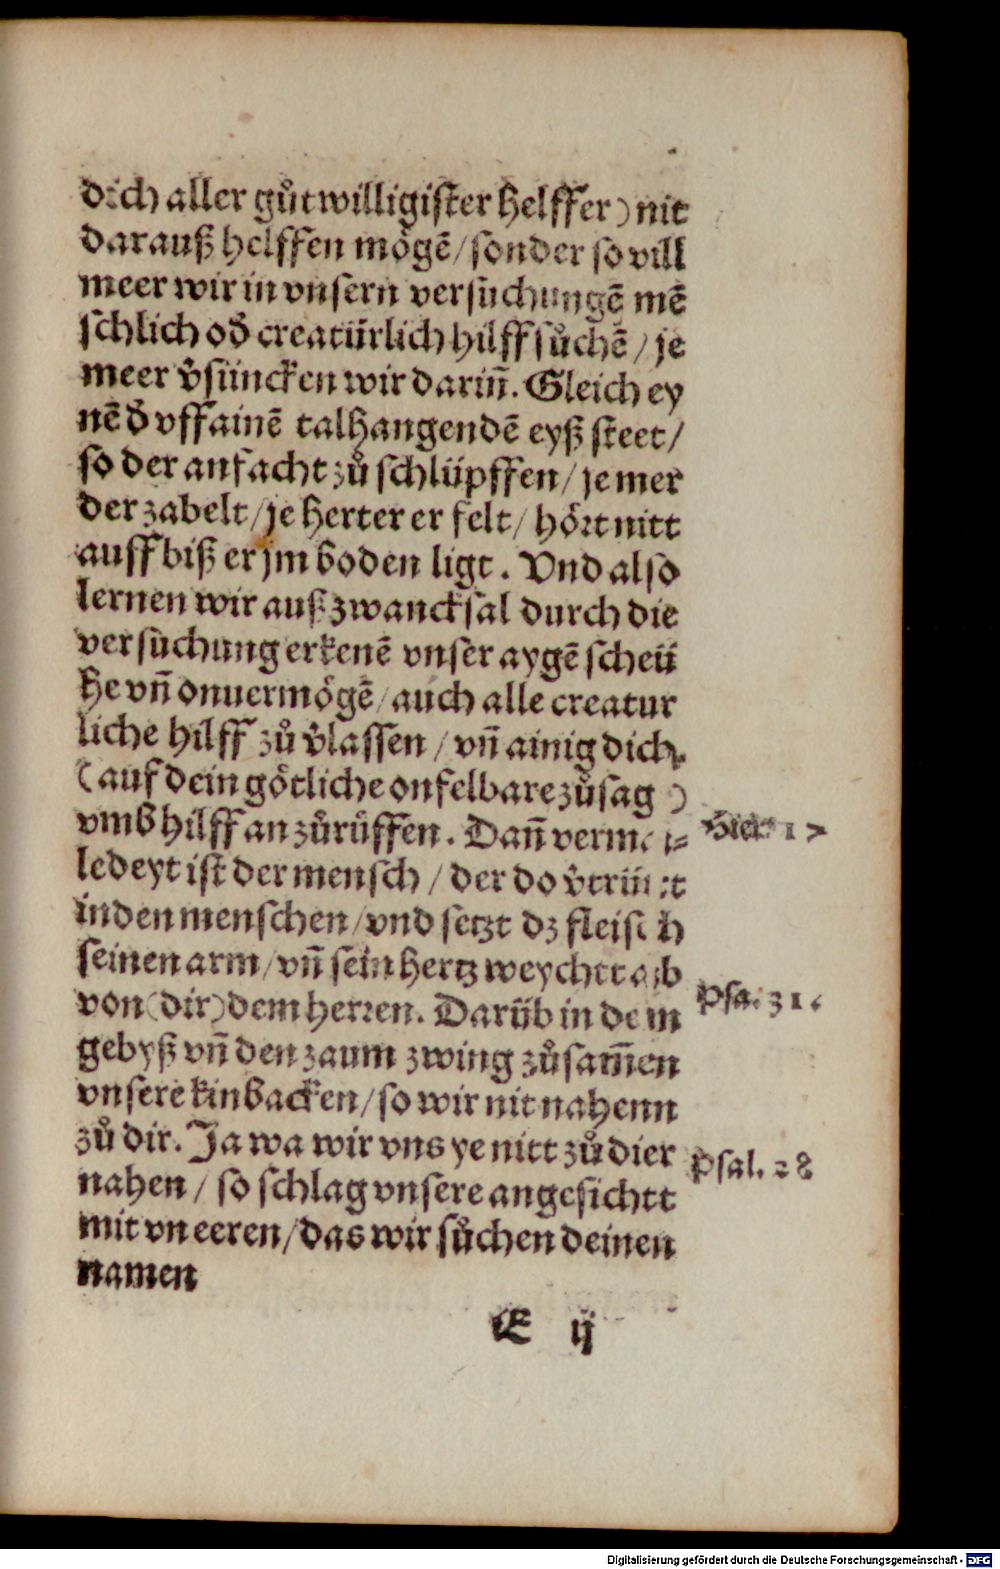 dich aller gůtwilligister helffer) nit
darauß helffen mögē/sonder so vill
meer wir in vnsern versůchungē mē
schlich od̕ creatürlich hilff sůchē/je
meer v̕süncken wir dariñ. Gleich ey
nē d̕ vff ainē talhangendē eyß steet/
so der anfacht zů schlüpffen/je mer
der zabelt/je herter er felt/hört nitt
auff biß er jm boden ligt. Vnd also
lernen wir auß zwancksal durch die
versůchung erkenē vnser aygē scheü
he vñ onuermögē/auch alle creatur
liche hilff zů v̕lassen/vñ ainig dich
(auf dein götliche onfelbare zůsag)
vmb hilff an zůrůffen. Dañ
ledeyt ist der mensch/der do
in den menschen/vnd setzt dz fleisch
seinen arm/vñ sein hertz weychtt ab
von (dir) dem herren. Darüb in dem
gebyß vñ den zaum zwing zůsam̃en
vnsere kinbacken/so wir nit nahenn
zů dir. Ja wa wir vns ye nitt zů dier
nahen/so schlag vnsere angesichtt
mit vn eeren/das wir sůchen deinen
namen
17
Psa. 31.
Psal. 28
E ij
Digitalisierung gefördert durch die Deutsche Forschungsgemeinschaft - DFG